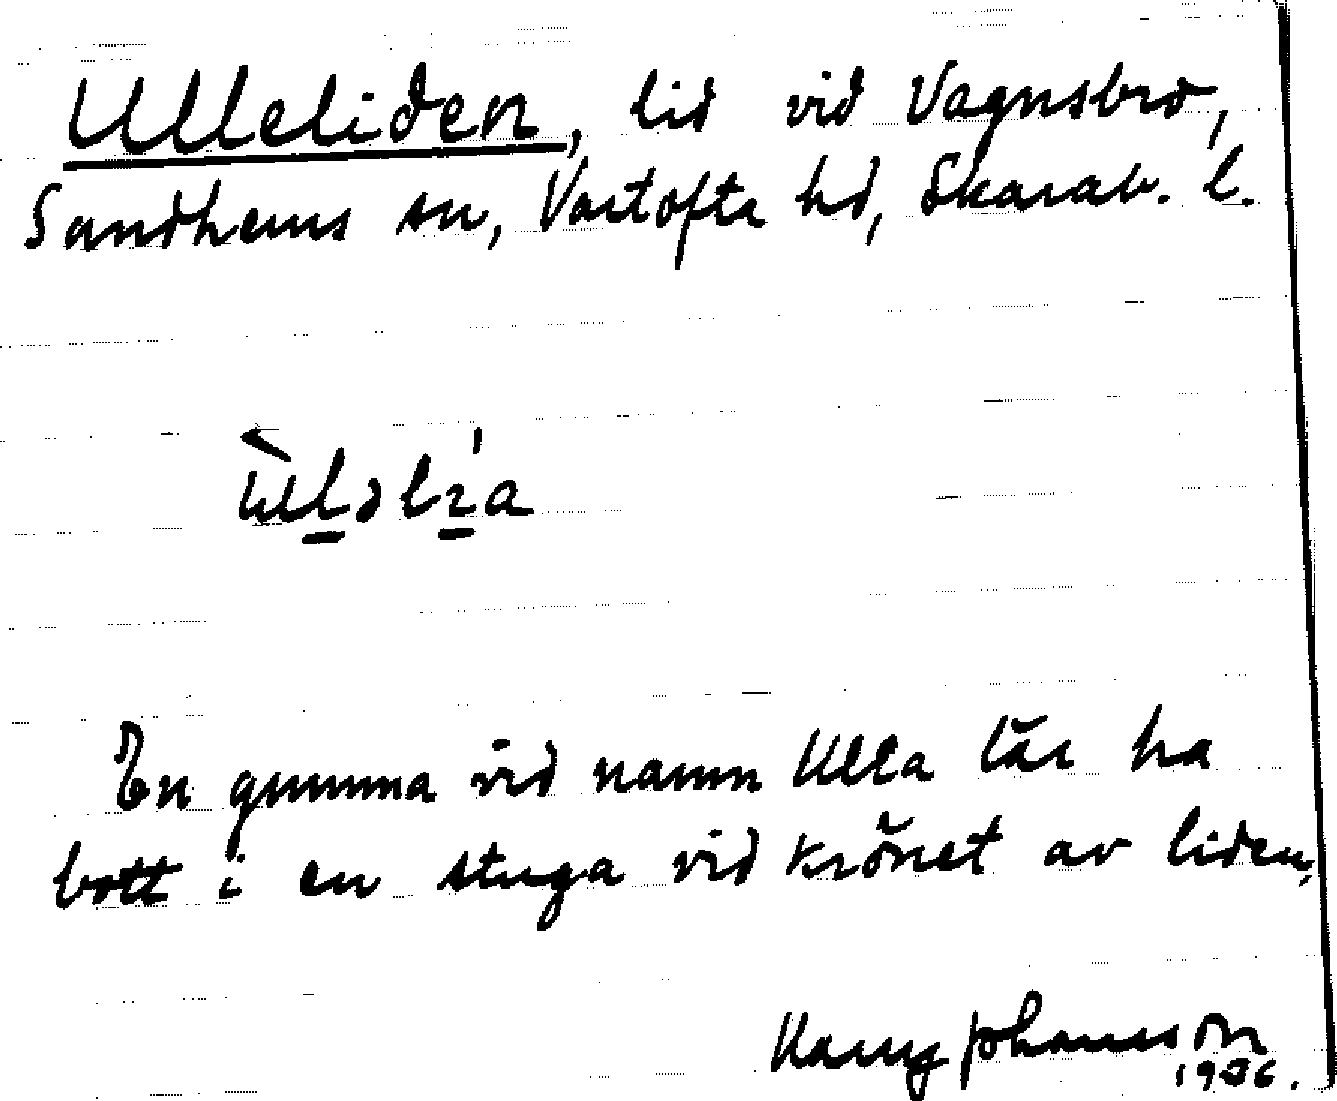 Ulleliden, lid vid Vagnsbro,
Sandhems sn, Vartofta hd, Skarab. l.
En gumma vid namn Ulla lär ha
bott i en stuga vid krönet av liden,
Harry Johansson
1936.